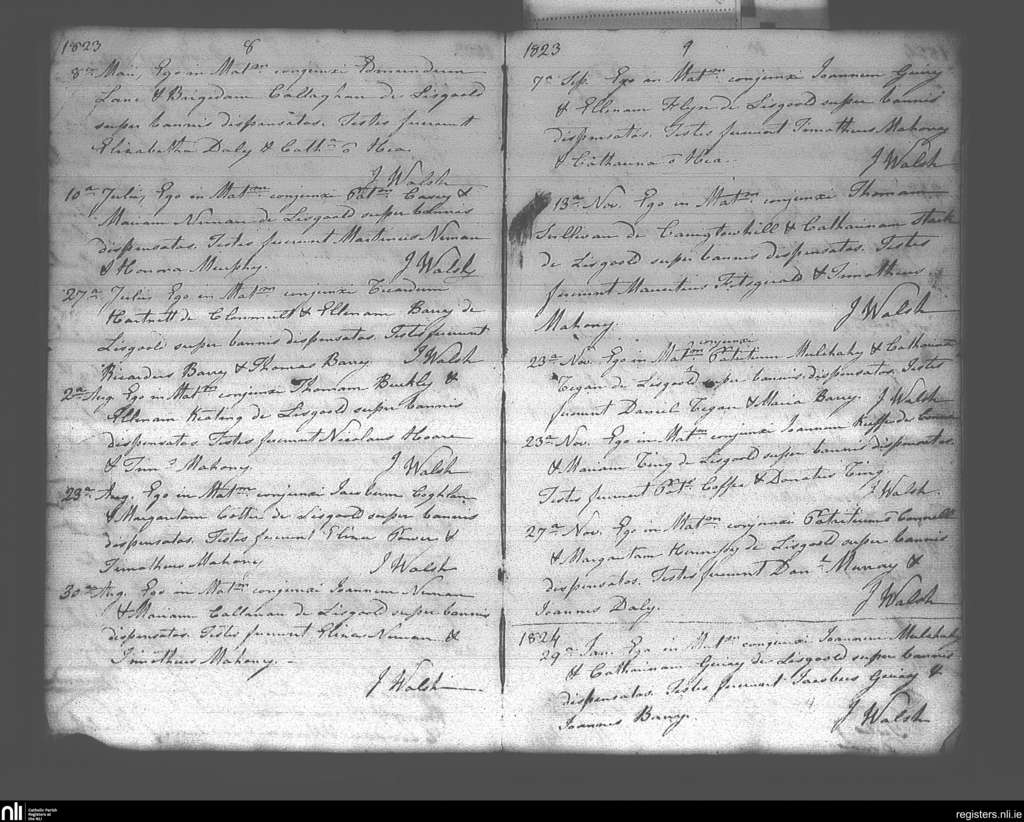 1823 8
8a Maii, Ego in Matm conjunxi Edmundum
Lane & Brigidam Callaghan de Lisgoold
super bannis dispensatos. Testes fuerunt
Elizabetha Daly & Cathna ō Hea.
J Walsh
10a Julii, Ego in Matm conjunxi Patm Casey &
Mariam Ninnan de Lisgoold super bannis
dispensatos. Testes fuerunt Martinus Ninnan
& Honora Murphy. J Walsh
27a Julii Ego in Matm conjunxi
Hartnett de Clonmult & Ellenam Barry de
Lisgoold super bannis dispensatos. Testes fuerunt
Ricardus Barry & Thomas Barry. J Walsh
2a Aug. Ego in Matm conjunxi Thomam Buckly &
Ellenam Keating de Lisgoold super bannis
dispensatos Testes fuerunt Nicolaus Hoare
& Mahony. J Walsh
23a Aug. Ego in Matm conjunxi Jacobum Coghlan
& Margaritam Cotter de Lisgoold super bannis
dispensatos. Testes fuerunt Eliza Power &
Timotheus Mahony J Walsh
30a Aug. Ego in Matm conjunxi Joannem Ninnan
& Mariam Callanan de Lisgoold super bannis
dispensatos. Testes fuerunt Eliza Ninnan &
Timotheus Mahony. -
J Walsh
1823 9
7a Sep. Ego in Matm conjunxi Joannem Geiry
& Ellenam Flyn de Lisgoold super bannis
dispensatos. Testes fuerunt Timotheus Mahony
& Catharina ō Hea. J Walsh
13a Nov. Ego in Matm conjunxi Thomam
Sullivan de & Catharinam Stack
de Lisgoold super bannis dispensatos. Testes
fuerunt Mauritius Fitsgerald & Timotheus
Mahony. J Walsh
conjunxi
23a Nov. Ego in Matm Patritium Mulchahy & Catharinam
Tegan de Lisgoold super bannis dispensatos. Testes
fuerunt Daniel Tegan & Maria Barry. J Walsh
23a Nov. Ego in Matm conjunxi Joannem Keeffe de
& Mariam Ting de Lisgoold super bannis dispensatos.
Testes fuerunt Patt Coffee & Donatus Ting
J Walsh.
27a Nov. Ego in Matm conjunxi Patritium Connell
& Margaritam Hennessy de Lisgoold super bannis
dispensatos. Testes fuerunt Danl Murray &
Joannes Daly. J Walsh
1824
29a Jan. Ego in Matm conjunxi Joannem Mulchahy
& Catharinam Geiry de Lisgoold super bannis
dispensatos. Testes fuerunt Jacobus Geiry &
Joannes Barry. J Walsh
nli Catholic Parish
Registers at
the NLI
registers.nli.ie